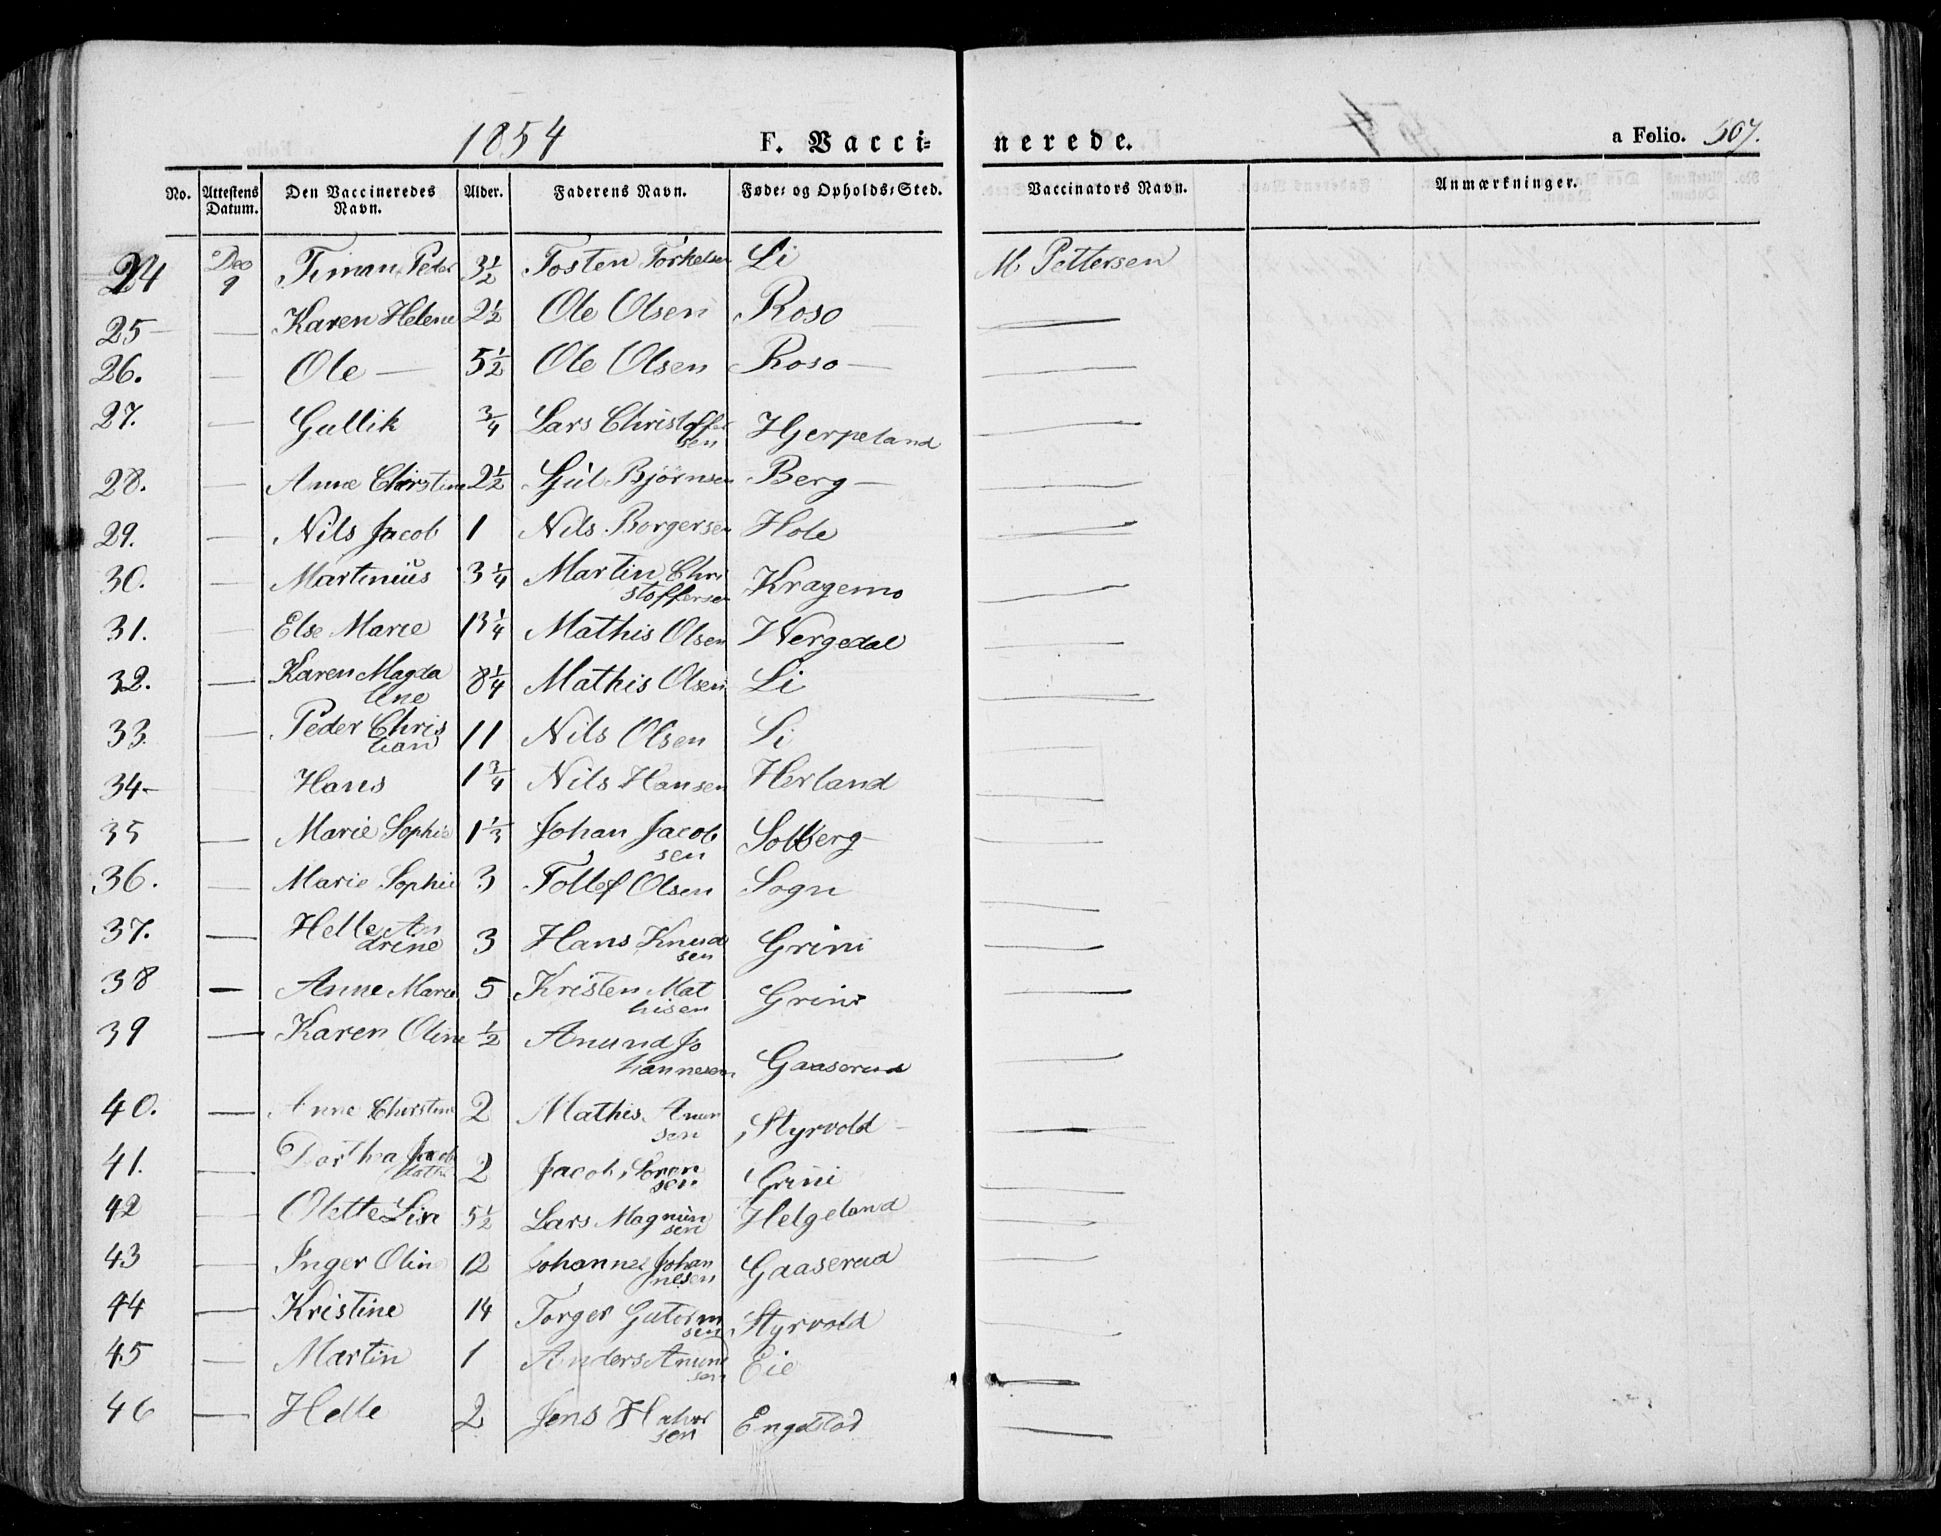 1854 F. Vacci- nerede. a Folio. 507.
No. Attestens Datum. Den Vaccineredes Navn. Alder. Faderens Navn. Føde- og Opholds-Sted. Vaccinators Navn. Anmærkninger.
24 Dec 9 Timan Peter 3½ Tosten Torkelsen Li M. Pettersen
25 — Karen Helene 2½ Ole Olsen Roso —
26. — Ole — 5½ Ole Olsen Roso — —
27. — Gullik ¾ Lars Christoffersen Hjerpeland —
28. — Anne Christine 2½ Gjul Bjørnsen Berg — —
29. — Nils Jacob 1 Nils Borgersen Hole —
30. — Martinius 3¼ Martin Chri
stoffersen Kragemo —
31. — Else Marie 13¼ Mathis Olsen Wergedal —
32. — Karen Magda
lene 8¼ Mathis Olsen Li —
33. — Peder Chris
tian 11 Nils Olsen Li
34 — Hans 1¾ Nils Hansen Herland —
35 — Marie Sophie 1⅓ Johan Jacob
sen Solberg —
36. — Marie Sophie 3 Tollef Olsen Sogn —
37. — Helle An
drine 3 Hans Knud
sen Grini —
38 — Anne Marie 5 Kristen Mat
hisen Grini —
39 — Karen Oline ½ Anund Jo
hannesen Gaaserud —
40. — Anne Christine 2 Mathis Anun
sen Styrvold —
41. — Dortha Jacob 2 Jacob Søren
sen Grini —
42 — Olette Lien 5½ Lars Magnun
sen Helgeland —
43 — Inger Oline 12 Johannes Johan
nesen Gaaserud —
44 — Kristine 14 Torger Gutorm
sen Styrvold —
45 — Martin 1 Anders Anund
sen Eie —
46 — Helle 2 Jens Halvor
sen Engelstad —